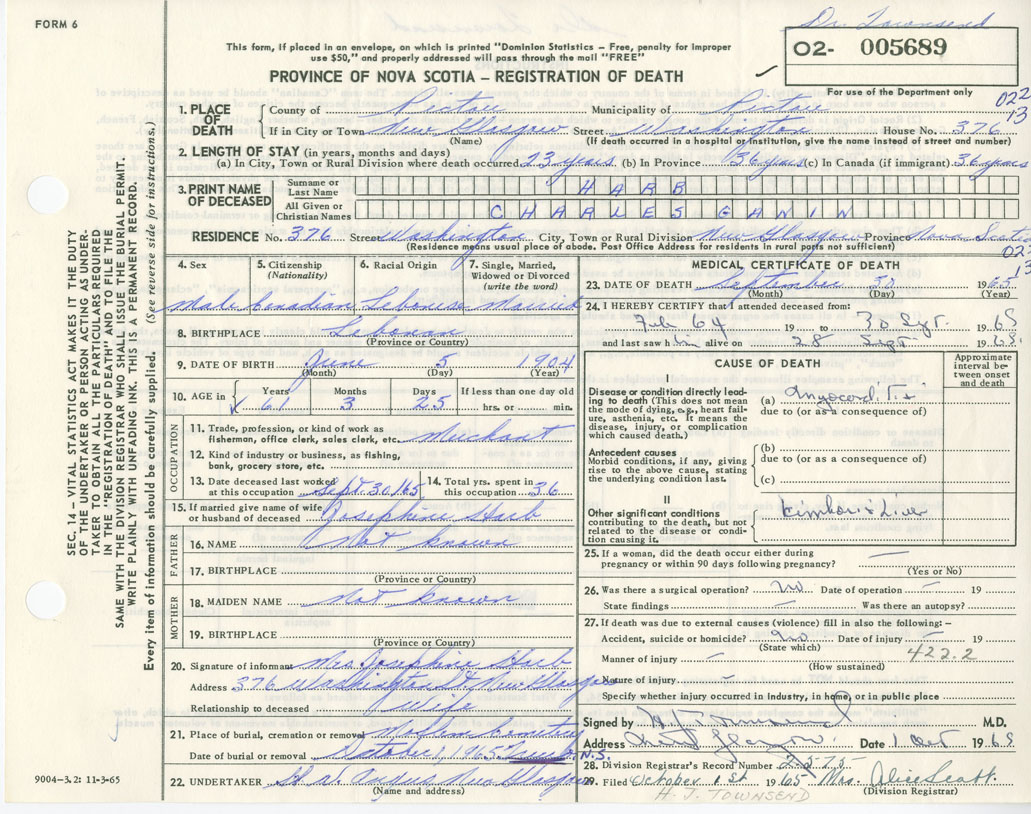 FORM 6
Dr. Townsend
This form, if placed in an envelope, on which is printed "Dominion Statistics – Free, penalty for improper
use $50," and properly addressed will pass through the mail "FREE"
O2- 005689
PROVINCE OF NOVA SCOTIA – REGISTRATION OF DEATH
For use of the Department only
022
13
1. PLACE OF DEATH
County of Pictou Municipality of Pictou
If in City or Town New Glasgow Street Washington House No. 376
(Name) (If death occurred in a hospital or institution, give the name instead of street and number)
2. LENGTH OF STAY (in years, months and days)
(a) In City, Town or Rural Division where death occurred 23 years (b) In Province 36 years (c) In Canada (if immigrant) 36 years
3. PRINT NAME OF DECEASED
Surname or Last Name HARB
All Given or Christian Names CHARLES GANIN
RESIDENCE No. 376 Street Washington City, Town or Rural Division New Glasgow Province Nova Scotia
(Residence means usual place of abode. Post Office Address for residents in rural parts not sufficient)
022
13
4. Sex 5. Citizenship (Nationality) 6. Racial Origin 7. Single, Married, Widowed or Divorced (write the word)
Male Canadian Lebonese Married
8. BIRTHPLACE Lebonan
(Province or Country)
9. DATE OF BIRTH June 5 1904
(Month) (Day) (Year)
10. AGE in Years Months Days If less than one day old
61 3 25 hrs. or min.
OCCUPATION
11. Trade, profession, or kind of work as
fisherman, office clerk, sales clerk, etc. Merchant
12. Kind of industry or business, as fishing,
bank, grocery store, etc.
13. Date deceased last worked at this occupation Sept. 30/65 14. Total yrs. spent in this occupation 36
15. If married give name of wife
or husband of deceased Josephine Harb
FATHER
16. NAME Not known
17. BIRTHPLACE
(Province or Country)
MOTHER
18. MAIDEN NAME Not known
19. BIRTHPLACE
(Province or Country)
20. Signature of informant Mrs. Josephine Harb
Address 376 Washington St, New Glasgow
Relationship to deceased Wife
21. Place of burial, cremation or removal Cemetery
Date of burial or removal October 3, 1965 N.S.
22. UNDERTAKER Angus New Glasgow
(Name and address)
MEDICAL CERTIFICATE OF DEATH
23. DATE OF DEATH September 30 1965
(Month) (Day) (Year)
24. I HEREBY CERTIFY that I attended deceased from:
Feb 64 19 to 30 Sept. 1965
and last saw him alive on 28 Sept 1965
CAUSE OF DEATH
Approximate interval between onset and death
I
Disease or condition directly leading to death (This does not mean
the mode of dying, e.g., heart failure, asthenia, etc. It means the
disease, injury, or complication
which caused death.)
(a)
due to (or as a consequence of)
Antecedent causes
Morbid conditions, if any, giving
rise to the above cause, stating
the underlying condition last.
(b)
due to (or as a consequence of)
(c)
II
Other significant conditions
contributing to the death, but not
related to the disease or condition causing it.
Liver
25. If a woman, did the death occur either during
pregnancy or within 90 days following pregnancy? —
(Yes or No)
26. Was there a surgical operation? No Date of operation – 19
State findings – Was there an autopsy?
27. If death was due to external causes (violence) fill in also the following: –
Accident, suicide or homicide? No Date of injury – 19
(State which)
422.2
Manner of injury –
(How sustained)
Nature of injury –
Specify whether injury occurred in industry, in home, or in public place
Signed by H J Townsend M.D.
Address New Glasgow Date 1 Oct 1965
28. Division Registrar's Record Number 2575
29. Filed October 1st 1965 Mrs. Alice Scott.
(Division Registrar)
H. J. TOWNSEND
SEC. 14 – VITAL STATISTICS ACT MAKES IT THE DUTY
OF THE UNDERTAKER OR PERSON ACTING AS UNDERTAKER TO OBTAIN ALL THE PARTICULARS REQUIRED
IN THE "REGISTRATION OF DEATH" AND TO FILE THE
SAME WITH THE DIVISION REGISTRAR WHO SHALL ISSUE THE BURIAL PERMIT.
WRITE PLAINLY WITH UNFADING INK. THIS IS A PERMANENT RECORD.
Every item of information should be carefully supplied. (See reverse side for instructions.)
9004–3.2: 11-3-65